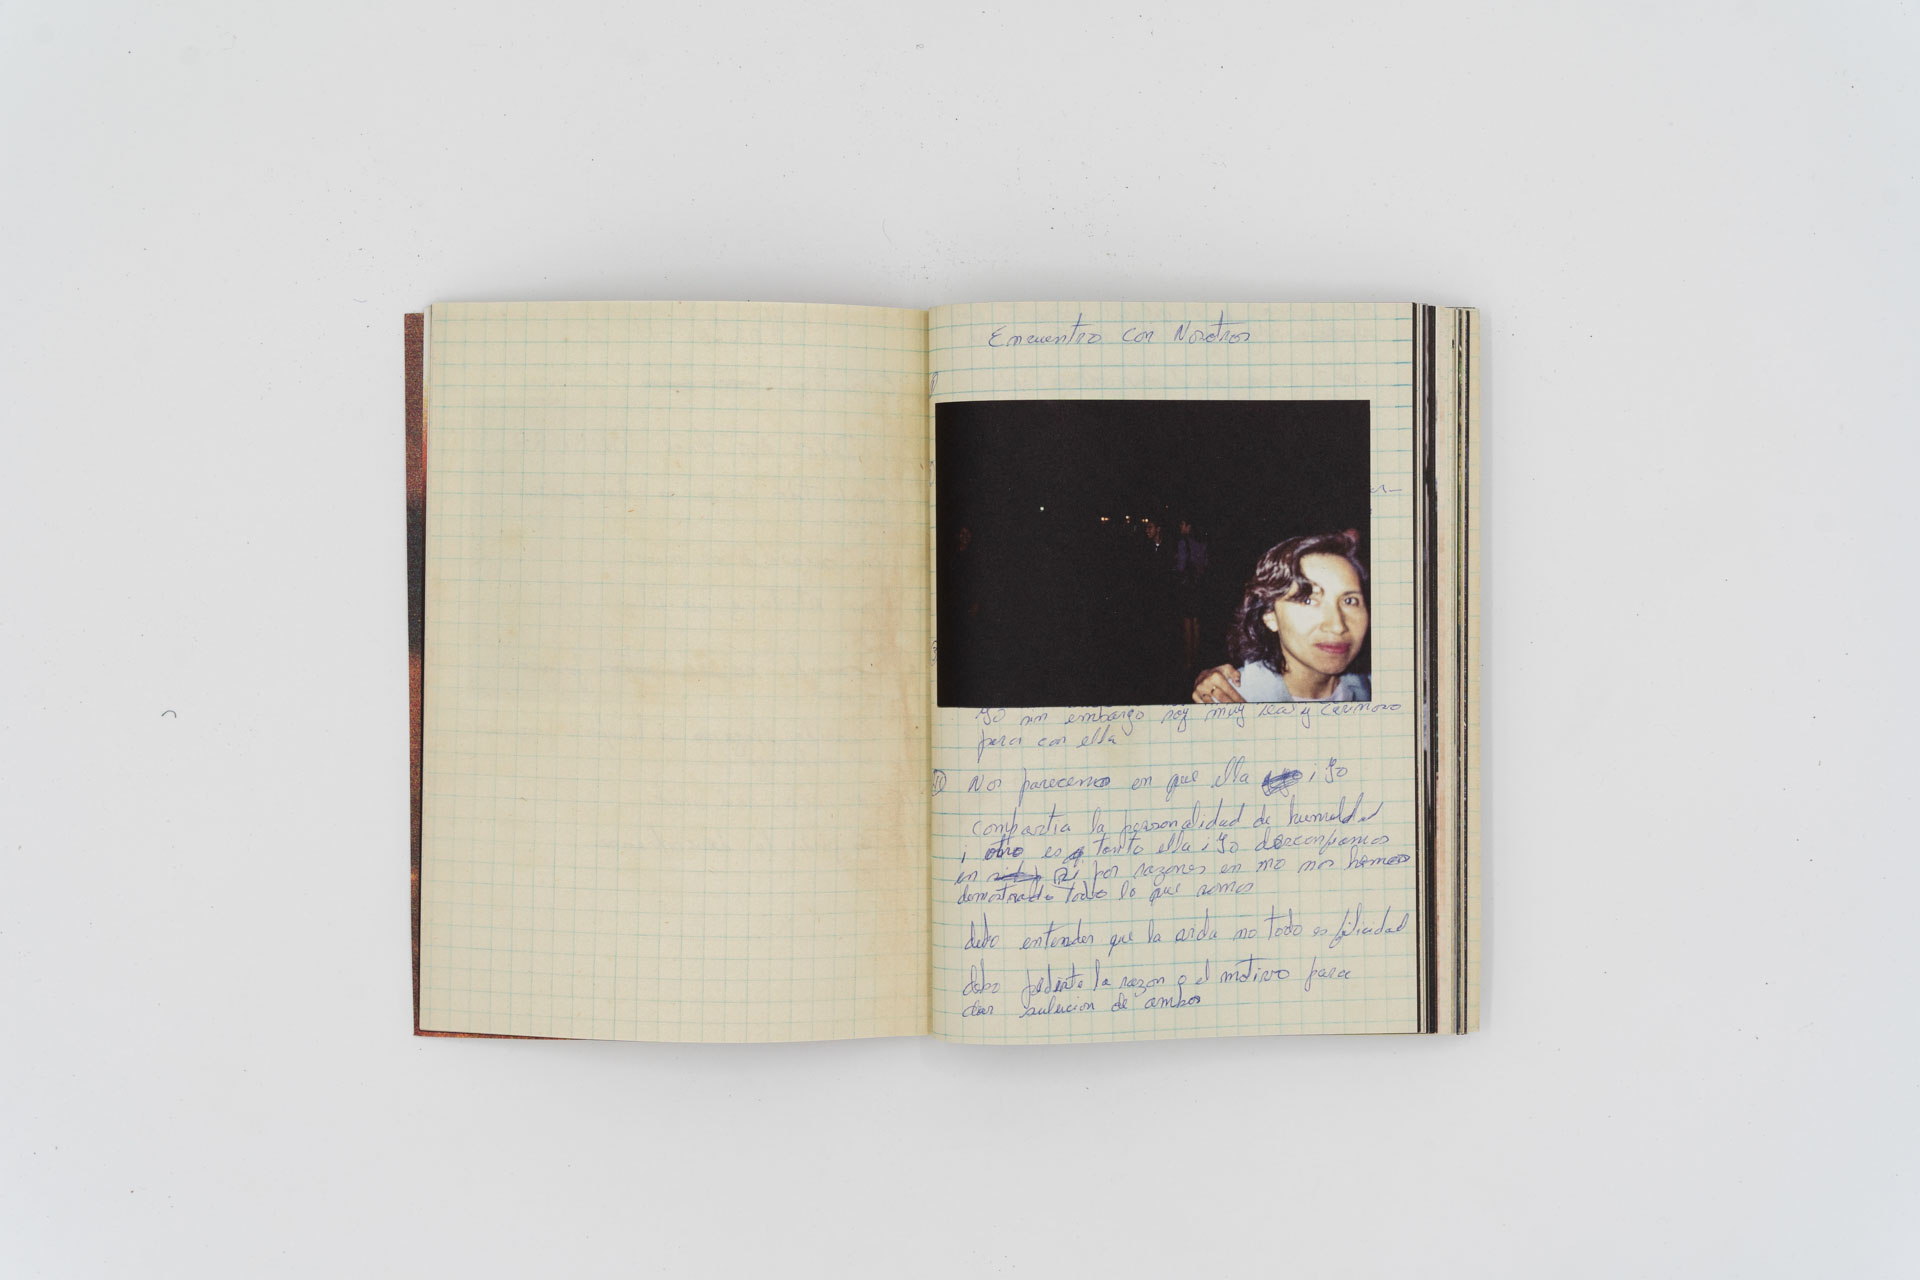 Encuentro con Nosotros
Yo sin embargo soy muy y cariñoso
para con ella
Nos parecemos en que ella i Yo
compartia la personalidad de humilde
i otro es q tanto ella i Yo desconfiamos
en si por razones en no nos hemos
demostrado todo lo que somos
debo entender que la vida no todo es felicidad
debo la razon o el motivo para
dar de ambos